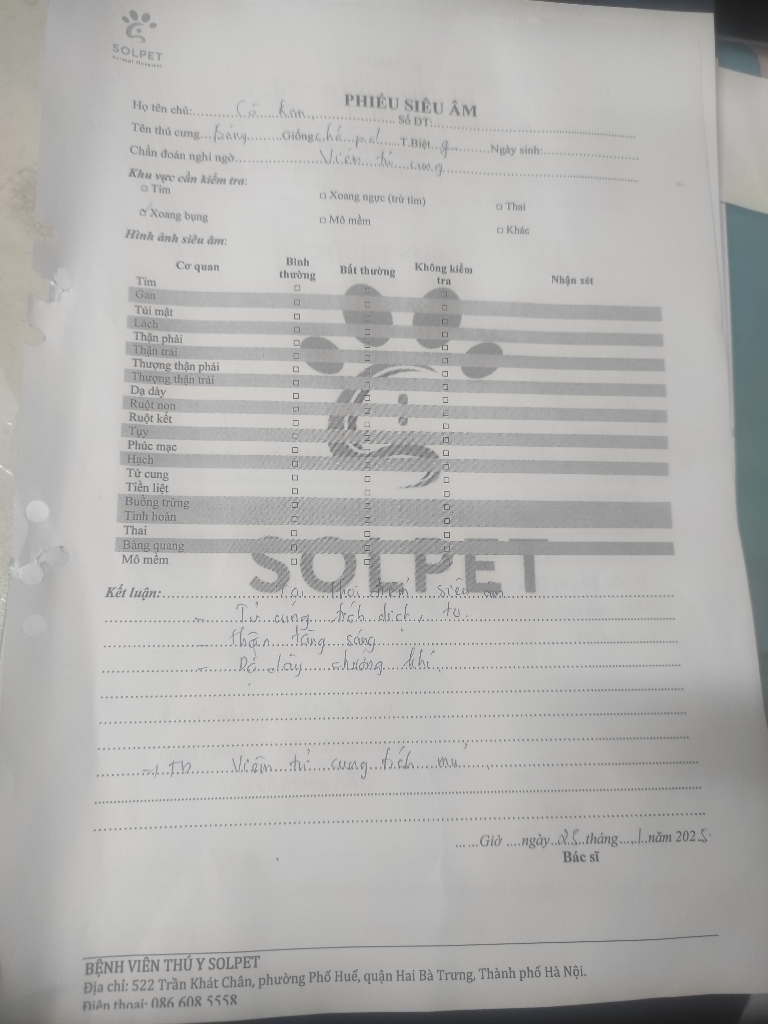 SOLPET
Animal Hospital
PHIẾU SIÊU ÂM
Họ tên chủ: Cô Số ĐT:
Tên thú cưng Giống T.Biệt Ngày sinh:
Chẩn đoán nghi ngờ Viêm tử cung
Khu vực cần kiểm tra:
□ Tim □ Xoang ngực (trừ tim) □ Thai
☑ Xoang bụng □ Mô mềm □ Khác
Hình ảnh siêu âm:
Cơ quan Bình thường Bất thường Không kiểm tra Nhận xét
Tim □ □ □
Gan □ □ □
Túi mật □ □ □
Lách □ □ □
Thận phải □ □ □
Thận trái □ □ □
Thượng thận phải □ □ □
Thượng thận trái □ □ □
Dạ dày □ □ □
Ruột non □ □ □
Ruột kết □ □ □
Tụy □ □ □
Phúc mạc □ □ □
Hạch □ □ □
Tử cung □ □ □
Tiền liệt □ □ □
Buồng trứng □ □ □
Tinh hoàn □ □ □
Thai □ □ □
Bàng quang □ □ □
Mô mềm □ □ □
SOLPET
Kết luận: Tại thời điểm siêu âm
- Tử cung tích dịch, to
- thận tăng sáng
- Dạ dày chướng khí
Viêm tử cung tích mủ
Giờ ngày 25 tháng 1 năm 2025
Bác sĩ
BỆNH VIỆN THÚ Y SOLPET
Địa chỉ: 522 Trần Khát Chân, phường Phố Huế, quận Hai Bà Trưng, Thành phố Hà Nội.
Điện thoại: 086 608 5558